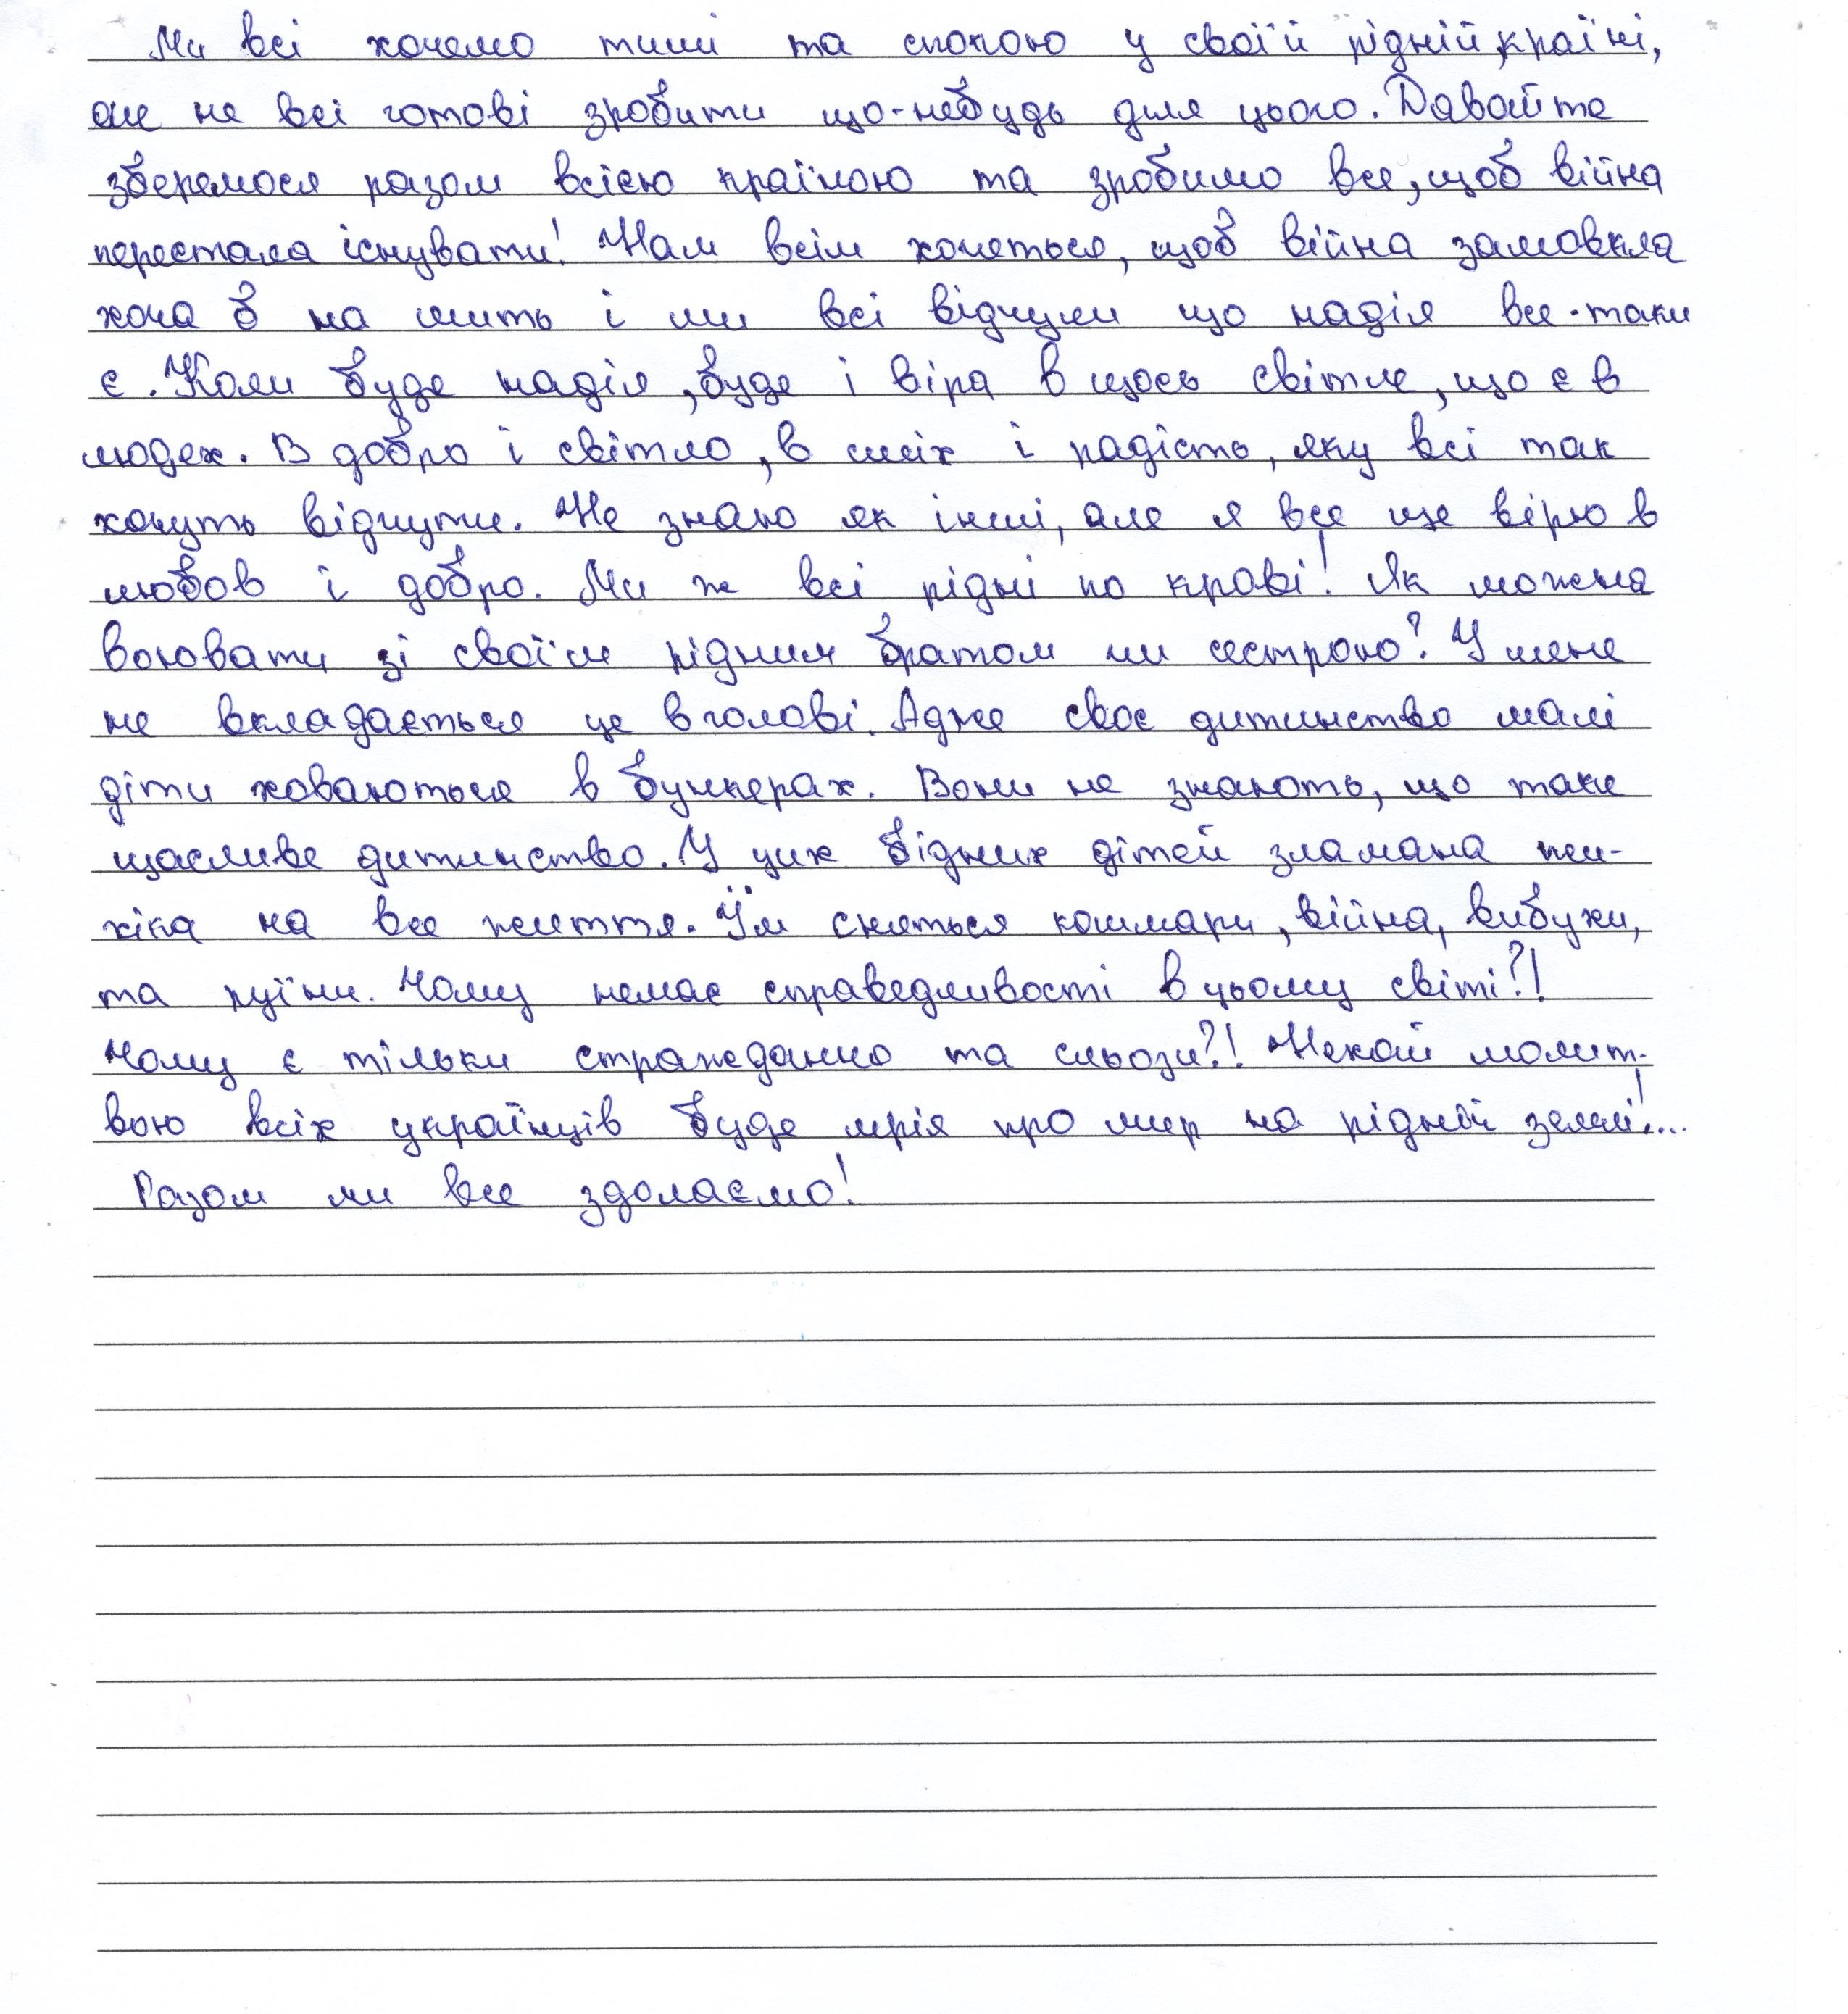 Ми всі хочемо тиші та спокою у своїй рідній країні,
але не всі готові зробити що-небудь для цього. Давайте
зберемося разом всією країною та зробимо все, щоб війна
перестала існувати! Нам всім хочеться, щоб війна замовкла
хоча б на мить і ми всі відчули що надія все-таки
є. Коли буде надія, буде і віра в щось світле, що є в
людех. В добро і світло, в сміх і радість, яку всі так
хочуть відчути. Не знаю як інші, але я все ще вірю в
любов і добро. Ми ж всі рідні по крові! Як можна
воювати зі своїм рідним братом чи сестрою? У мене
не вкладається це в голові. Адже своє дитинство малі
діти ховаються в бункерах. Вони не знають, що таке
щасливе дитинство. У цих бідних дітей зламана пси-
хіка на все життя. Їм сняться кошмари, війна, вибухи,
та руїни. Чому немає справедливості в цьому світі?!
Чому є тільки страждання та сльози?! Нехай молит-
вою всіх українців буде мрія про мир на рідній землі!...
Разом ми все здолаємо!